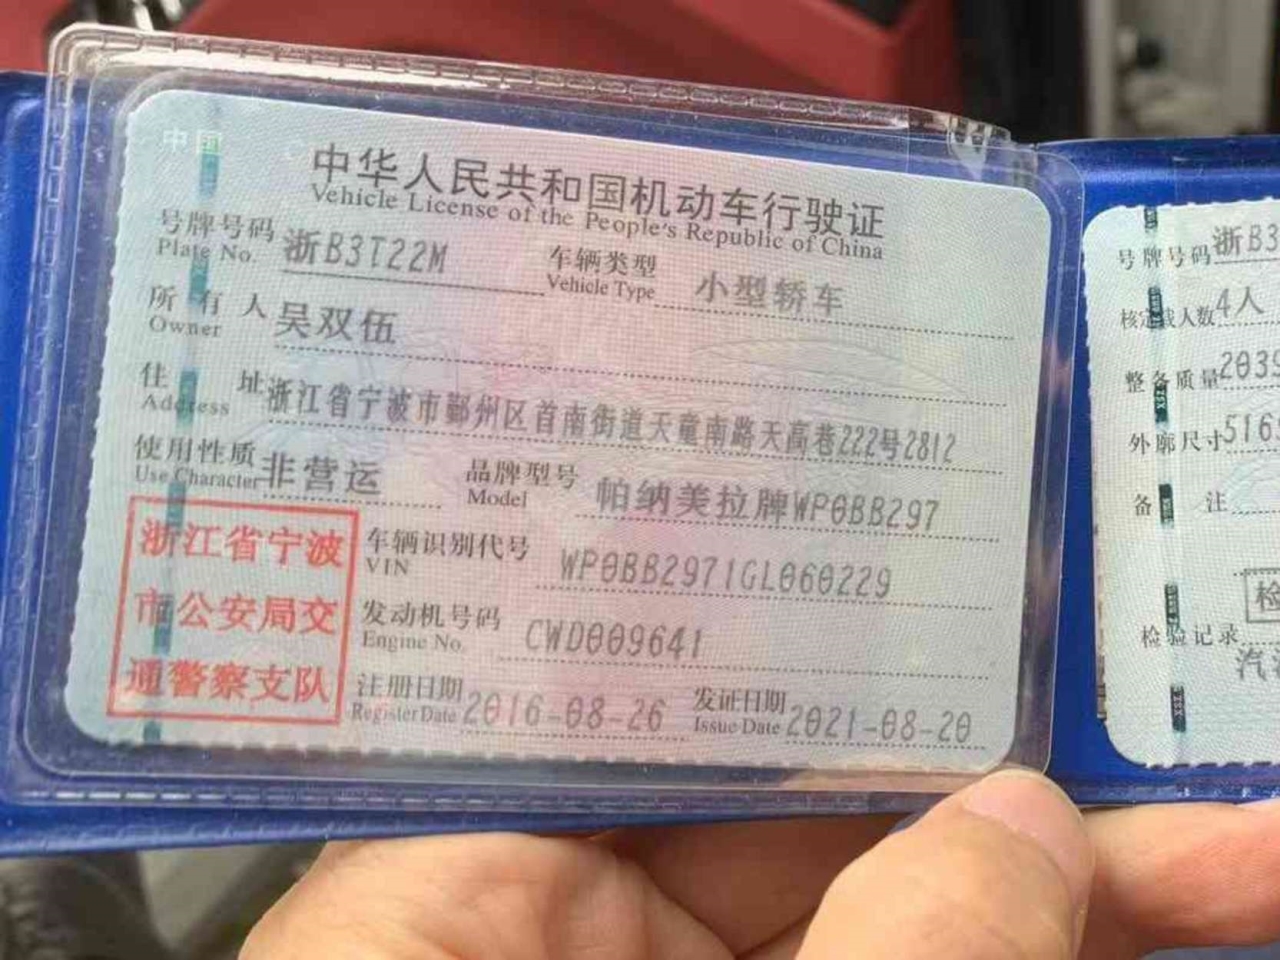 中国
中华人民共和国机动车行驶证
Vehicle License of the People's Republic of China
号牌号码 浙B3T22M 车辆类型 小型轿车
Plate No. Vehicle Type
所有人 吴双伍
Owner
住址 浙江省宁波市鄞州区首南街道天童南路天高巷222号2812
Address
使用性质 非营运 品牌型号 帕纳美拉牌WP0BB297
Use Character Model
车辆识别代号 WP0BB2971GL060229
VIN
发动机号码 CWD009641
Engine No.
注册日期 2016-08-26 发证日期 2021-08-20
Register Date Issue Date
浙江省宁波
市公安局交
通警察支队
号牌号码 浙B3
核定载人数 4人
整备质量 2035
外廓尺寸 516
备注
检
检验记录
汽